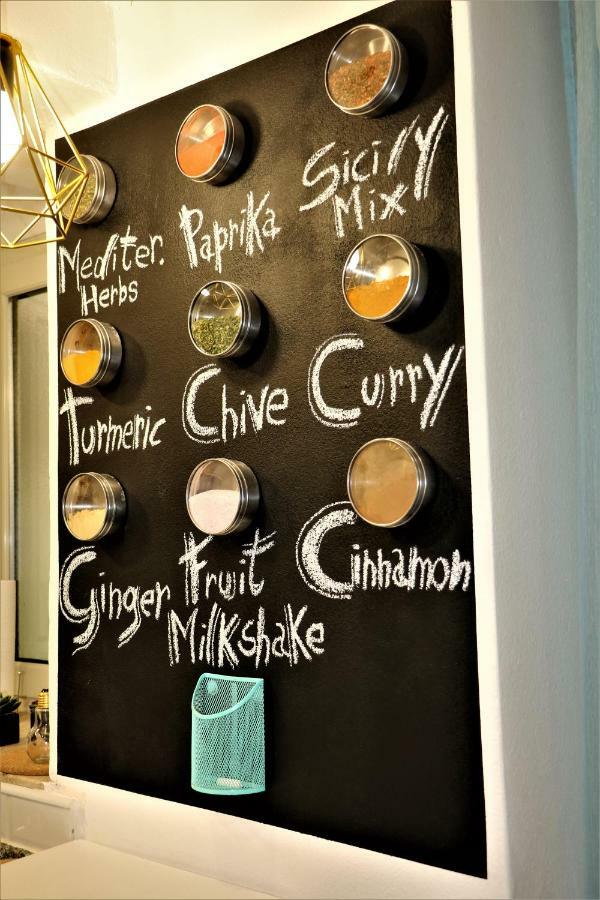 Mediter.
Herbs
Paprika
Sicily
Mix
Turmeric
Chive
Curry
Ginger
Fruit
Milkshake
Cinnamon